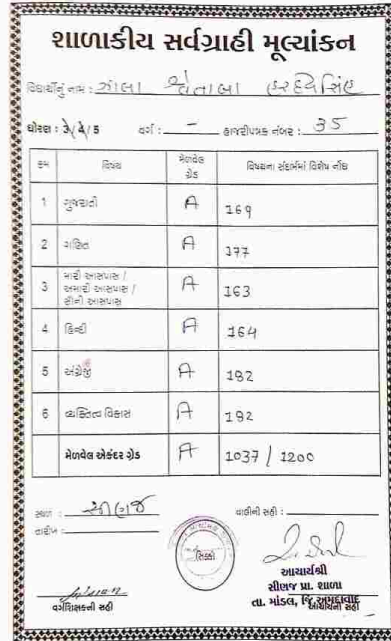 શાળાકીય સર્વગ્રાહી મૂલ્યાંકન
વિદ્યાર્થીનું નામ : ઝાલા શ્વેતાબા હરદેવસિંહ
ધોરણ : 3/4/5 વર્ગ : - હાજરીપત્રક નંબર : 35
ક્રમ વિષય મેળવેલ ગ્રેડ વિષયના સંદર્ભમાં વિશેષ નોંધ
1 ગુજરાતી A 169
2 ગણિત A 177
3 મારી આસપાસ / અમારી આસપાસ / સૌની આસપાસ A 163
4 હિન્દી A 164
5 અંગ્રેજી A 182
6 વ્યક્તિત્વ વિકાસ A 182
મેળવેલ એકંદર ગ્રેડ A 1037 / 1200
સ્થળ : સીણજ વાલીની સહી :
તારીખ :
સિક્કો
આચાર્યશ્રી
સીણજ પ્રા. શાળા
તા. માંડલ, જિ. અમદાવાદ
વર્ગશિક્ષકની સહી આચાર્યની સહી